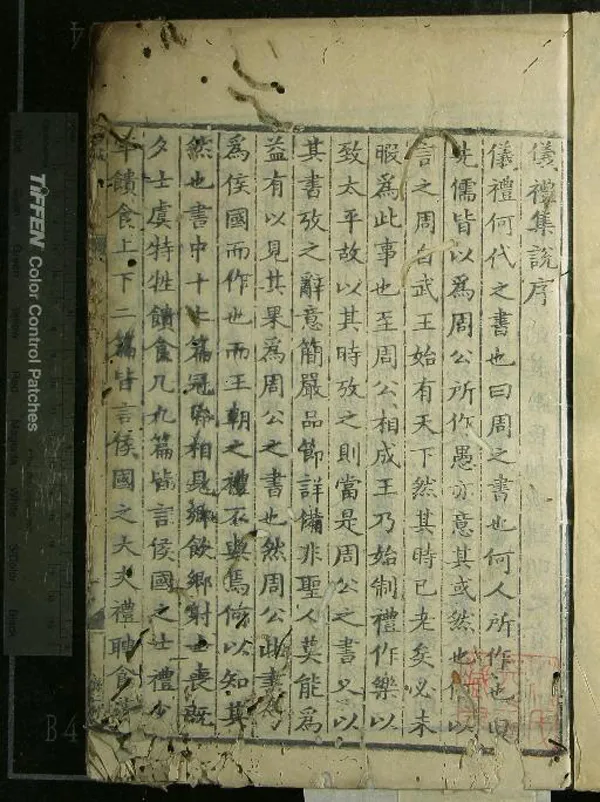 儀禮集說序
儀禮何代之書也曰周之書也何人所作也曰
先儒皆以為周公所作愚亦意其或然也何以
言之周自武王始有天下然其時已老矣必未
暇為此事也至周公相成王乃始制禮作樂以
致太平故以其時攷之則當是周公之書又以
其書攷之辭意簡嚴品節詳備非聖人莫能為
益有以見其果為周公之書也然周公此書
為侯國而作也而王朝之禮不與焉何以知其
然也書中十七篇冠昏相見鄉飲鄉射士喪既
夕士虞特牲饋食凡九篇皆言侯國之士禮少
牢饋食上下二篇皆言侯國之大夫禮聘食
TIFFEN Color Control Patches
B4